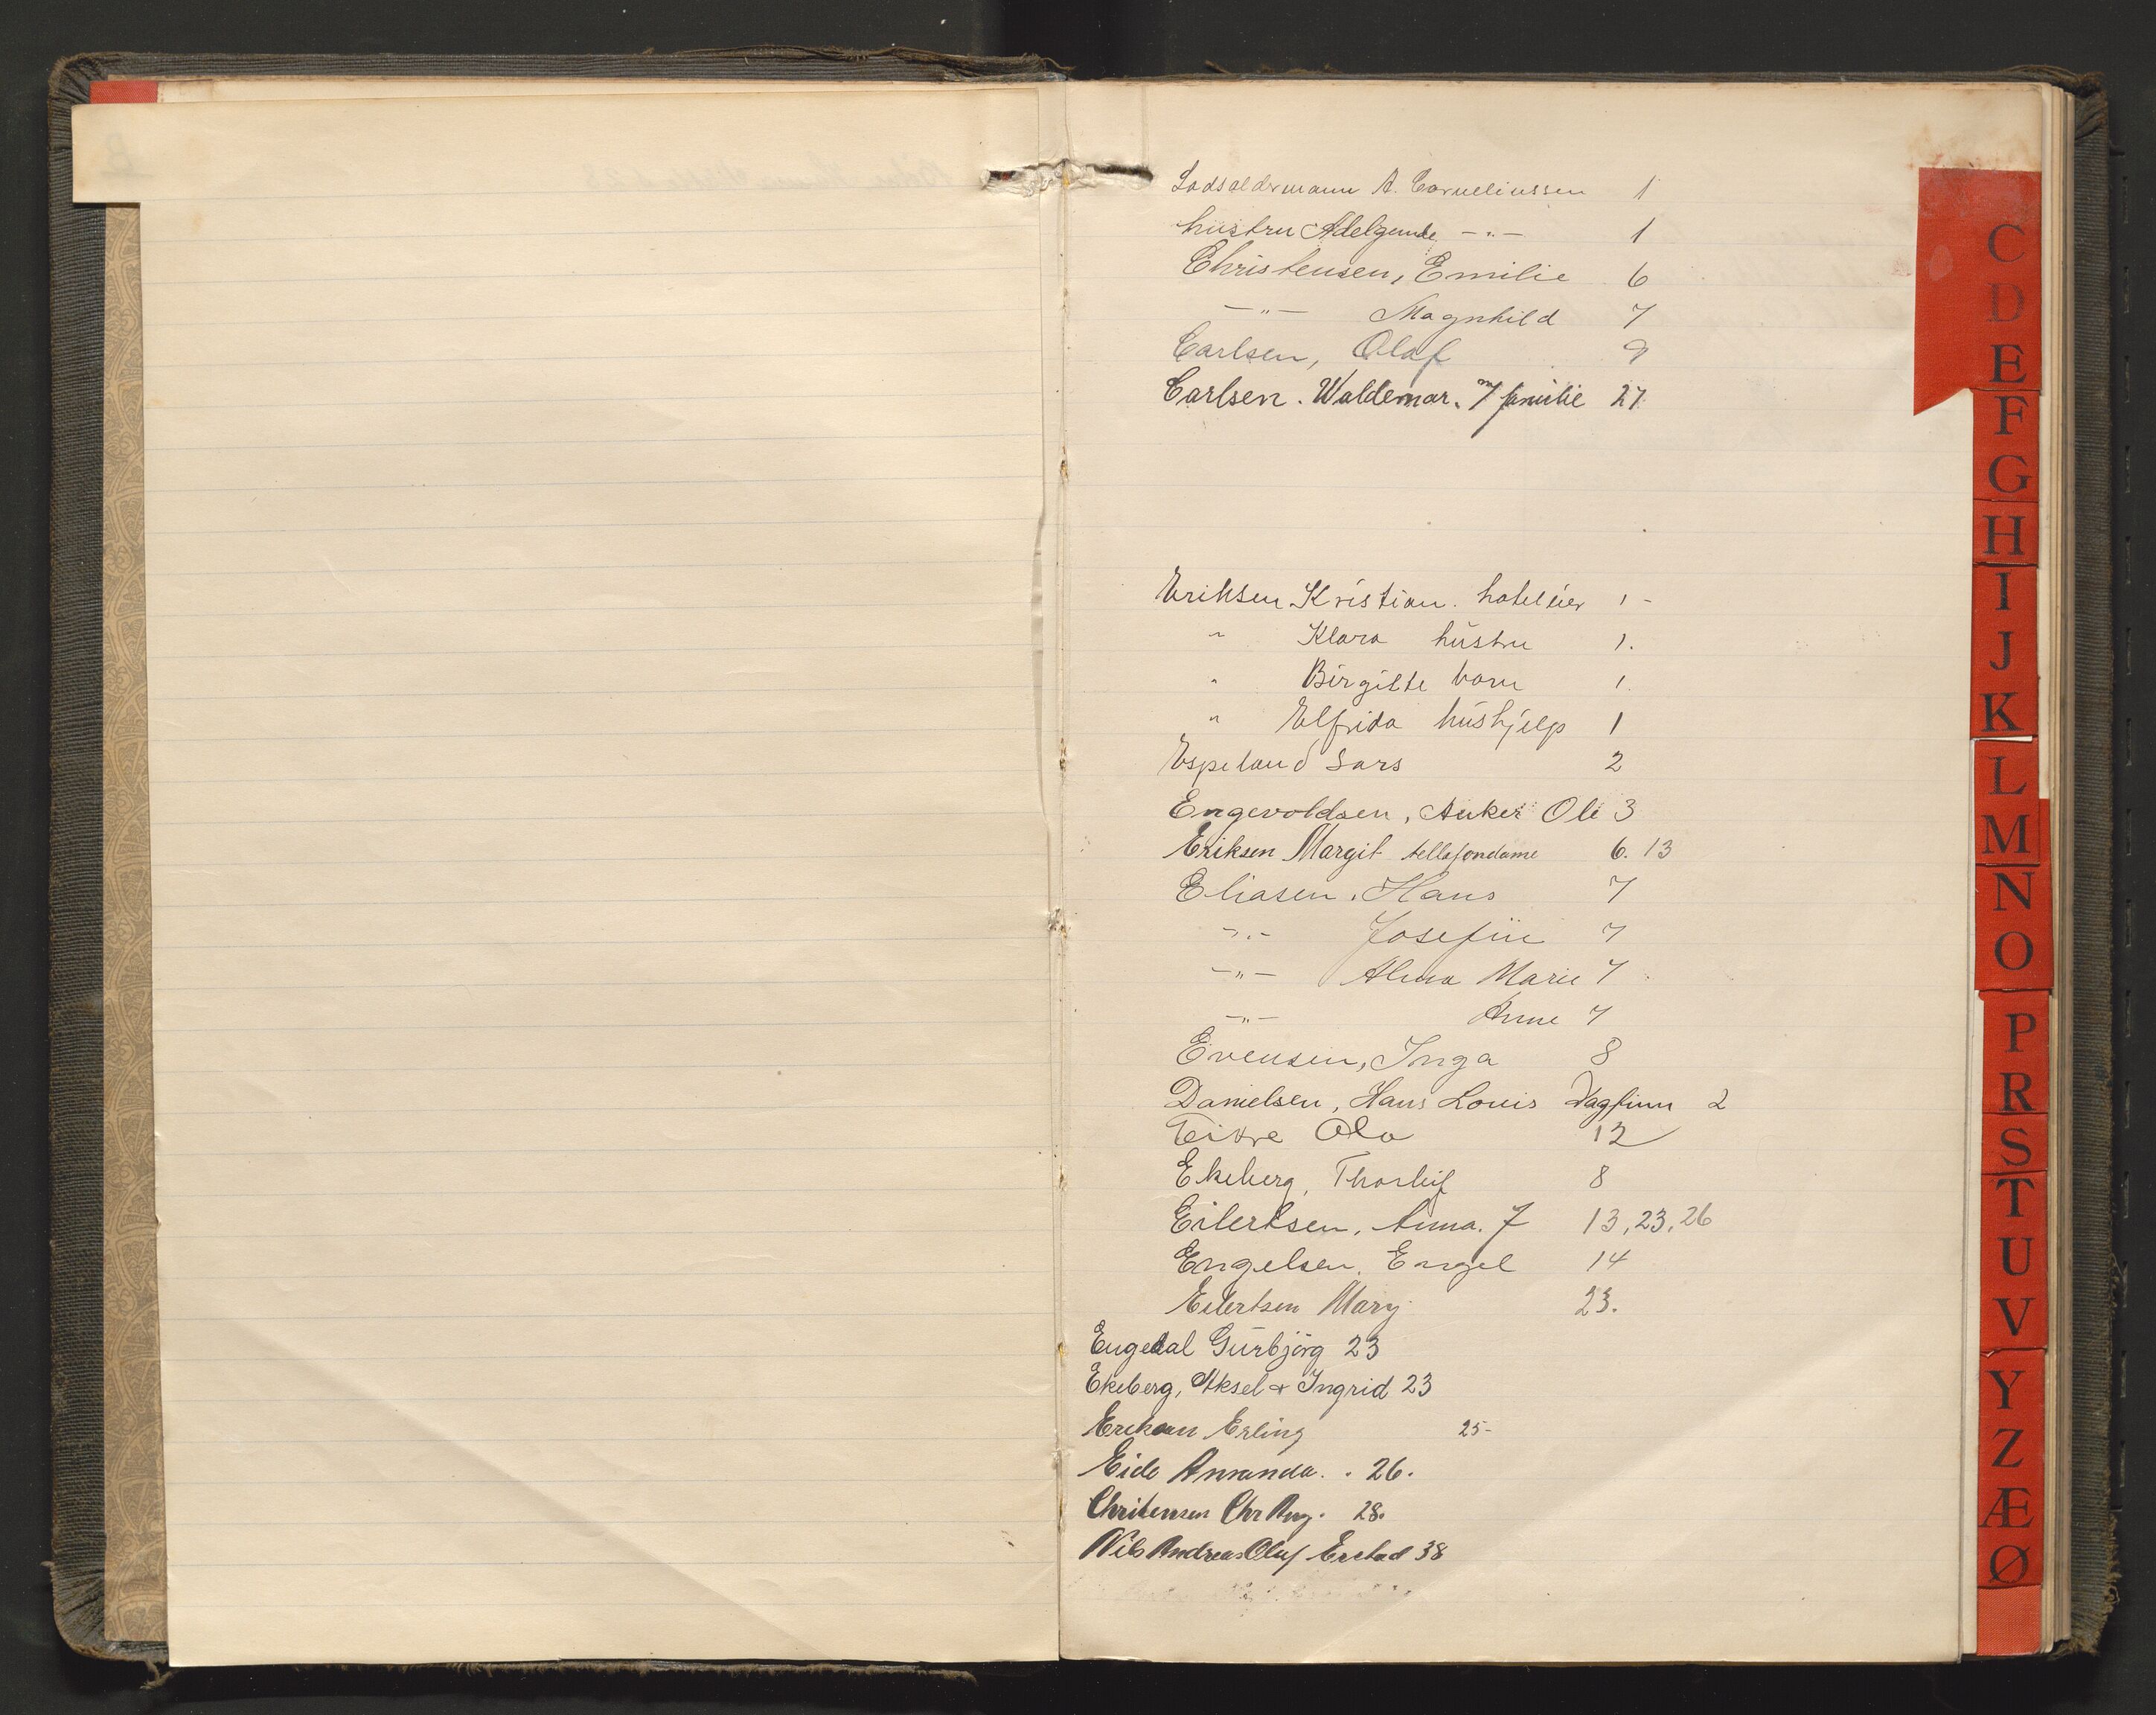 Lodsoldermann A. Corneliussen 1
hustru Adelgunde -"- 1
Christensen, Emilie 6
-"- Magnhild 7
Carlsen, Olaf 9
Carlsen. Waldemar. m/ familie 27.
Eriksen Kristian. hoteleier 1 -
" Klara hustru 1.
" Birgitte barn 1.
" Elfrida hushjelp 1
Espeland Lars 2
Engevoldsen, Anker Ole 3
Eriksen Margit tellefondame 6. 13
Eliasen, Hans 7
-"- Josefine 7
-"- Alma Marie 7
-"- Anne 7
Evensen, Inga 8
Danielsen, Hans Louis Dagfinn 2
Ola 12
Ekeberg, Thorleif 8
Eilertsen, Anna. J 13, 23, 26
Engelsen, Engel 14
Eilertsen Mary 23.
Engedal Gurbjörg 23
Ekeberg, Aksel + Ingrid 23
Ericksen Erling 25-
Eide Amanda. . 26.
Chritensen Chr Aug. 28.
Nils Andreas Oluf Erstad 38
C
D
E
F
G
H
I
J
K
L
M
N
O
P
R
S
T
U
V
Y
Z
Æ
Ø